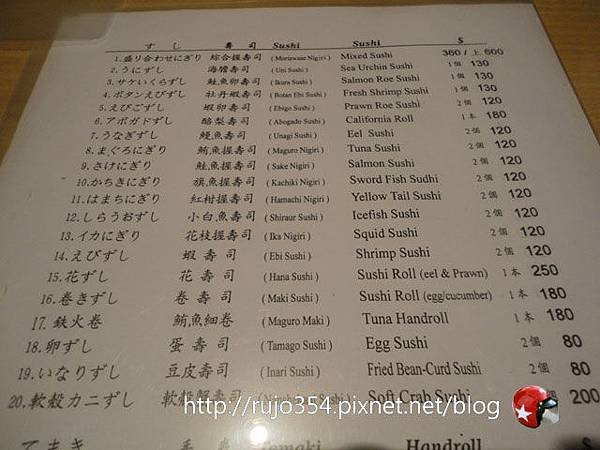 すし 壽司 Sushi Sushi $
1.盛り合わせにぎり 綜合握壽司 ( Moriawase Nigiri ) Mixed Sushi 360 / 上 600
2.うにずし 海膽壽司 ( Uni Sushi ) Sea Urchin Sushi 1個 130
3.サケいくらずし 鮭魚卵壽司 ( Ikura Sushi ) Salmon Roe Sushi 1個 130
4.ボタンえびずし 牡丹蝦壽司 ( Botan Ebi Sushi ) Fresh Shrimp Sushi 1個 130
5.えびこずし 蝦卵壽司 ( Ebigo Sushi ) Prawn Roe Sushi 2個 120
6.アボガドずし 酪梨壽司 ( Abogado Sushi ) California Roll 1本 180
7.うなぎずし 鰻魚壽司 ( Unagi Sushi ) Eel Sushi 2個 120
8.まぐろにぎり 鮪魚握壽司 ( Maguro Nigiri ) Tuna Sushi 2個 120
9.さけにぎり 鮭魚握壽司 ( Sake Nigiri ) Salmon Sushi 2個 120
10.かちきにぎり 旗魚握壽司 ( Kachiki Nigiri ) Sword Fish Sudhi 2個 120
11.はまちにぎり 紅柑握壽司 ( Hamachi Nigiri ) Yellow Tail Sushi 2個 120
12.しらうおずし 小白魚壽司 ( Shiraur Sushi ) Icefish Sushi 2個 120
13.イカにぎり 花枝握壽司 ( Ika Nigiri ) Squid Sushi 2個 120
14.えびずし 蝦壽司 ( Ebi Sushi ) Shrimp Sushi 2個 120
15.花ずし 花壽司 ( Hana Sushi ) Sushi Roll (eel & Prawn) 1本 250
16.巻きずし 卷壽司 ( Maki Sushi ) Sushi Roll (egg/cucumber) 1本 180
17.鉄火巻 鮪魚細卷 ( Maguro Maki ) Tuna Handroll 1本 180
18.卵ずし 蛋壽司 ( Tamago Sushi ) Egg Sushi 2個 80
19.いなりずし 豆皮壽司 ( Inari Sushi ) Fried Bean-Curd Sushi 2個 80
20.軟殼カニずし 軟殼蟹壽司 Sushi ) Soft Crab Sushi 200
http://rujo354.pixnet.net/blog
てまき 手卷 Temaki Handroll $